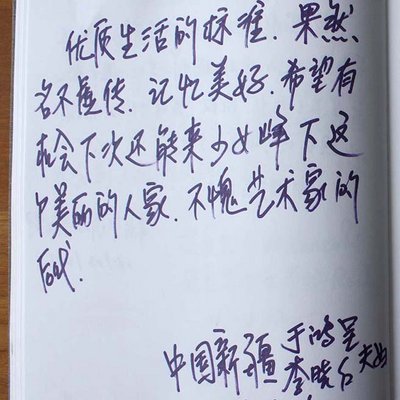 优质生活的标准.果然
名不虚传.记忆美好.希望有
机会下次还能来少女峰下这
个美丽的人家.不愧艺术家的
风域.
中国新疆于鸿呈
李晓
夫妇